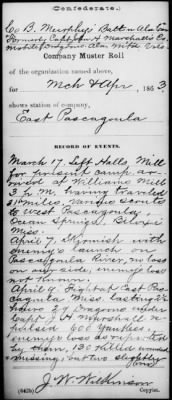 Confederate.
Co B. Murphy's Battn Ala Cav
Formerly Capt Jno H Marshall's Co
Mobile Dragoons Ala Mtd Vols.
Company Muster Roll
of the organization named above,
for Mch & Apr, 1863
shows station of company,
East Pascagoula
RECORD OF EVENTS.
March 17. Left Halls Mill
for present camp ar-
rived at Williams Mill
7 P. M. having traveled
31 miles. Various scouts
to West Pascagoula,
Ocean Springs, Biloxi
Miss.
April 7. Skirmish with
enemy's launch on
Pascagoula River, no loss
on our side, enemy's loss
not known.
April 9. Fight at East Pas-
cagoula Miss. lasting
hours 27 Dragoons under
Capt J H Marshall re-
pulsed 600 Yankees,
enemy's loss as reported
by them, 130 killed wounded
& missing, but two slightly
J. W. Wilkinson
(642b) Copyist.